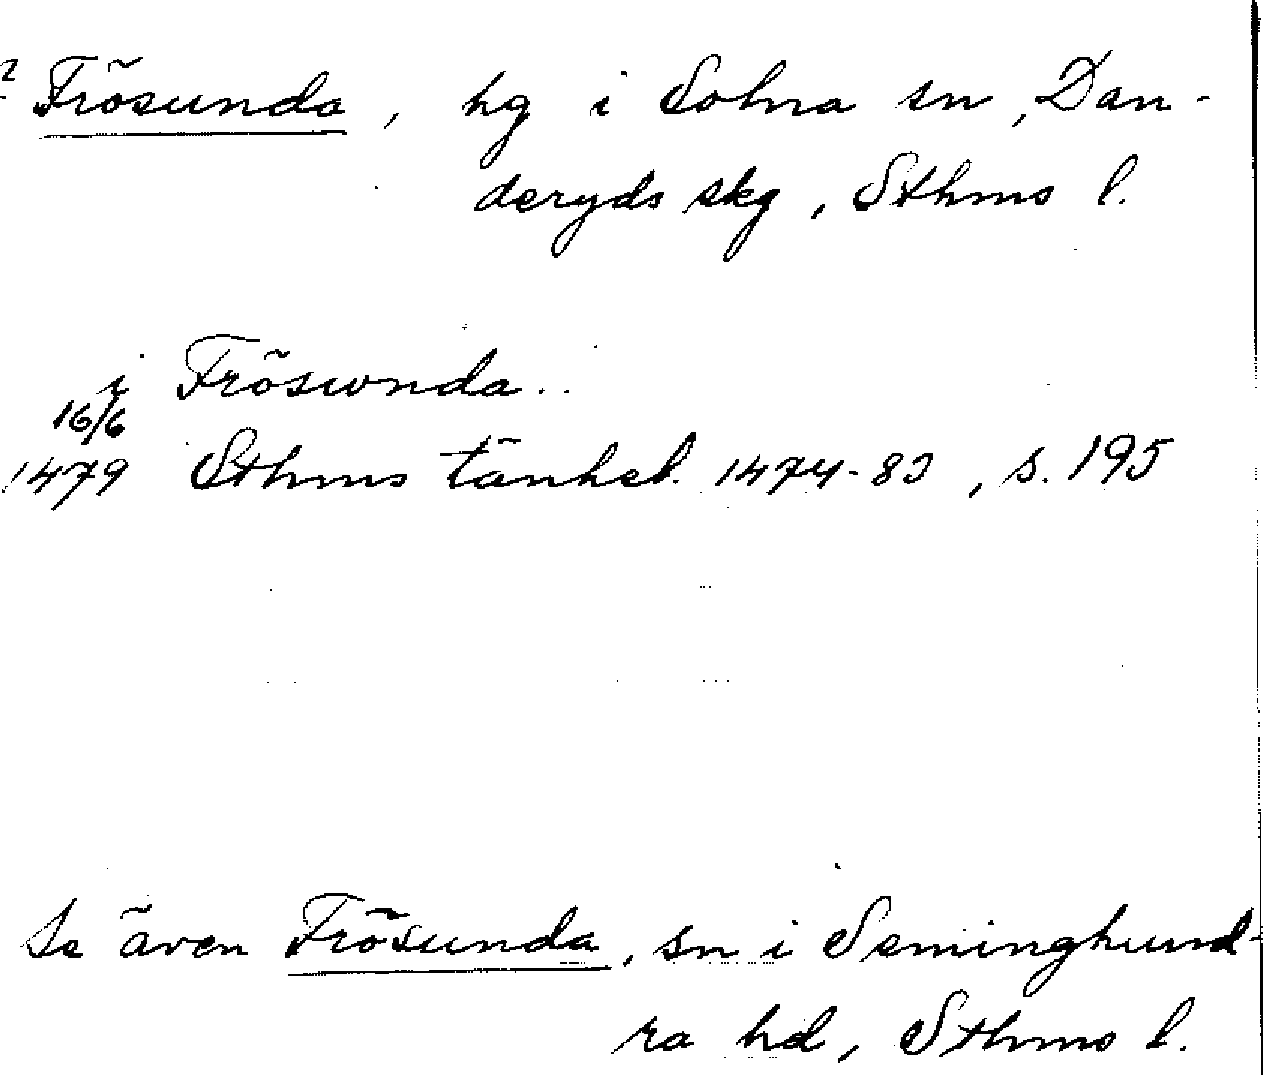 2 Frösunda, hg i Solna sn, Dan-
deryds skg, Sthms l.
i Fröswnda..
16/6
1479 Sthms tänkeb. 1474-83, s. 195
Se även Frösunda, sn i Seminghund-
ra hd, Sthms l.